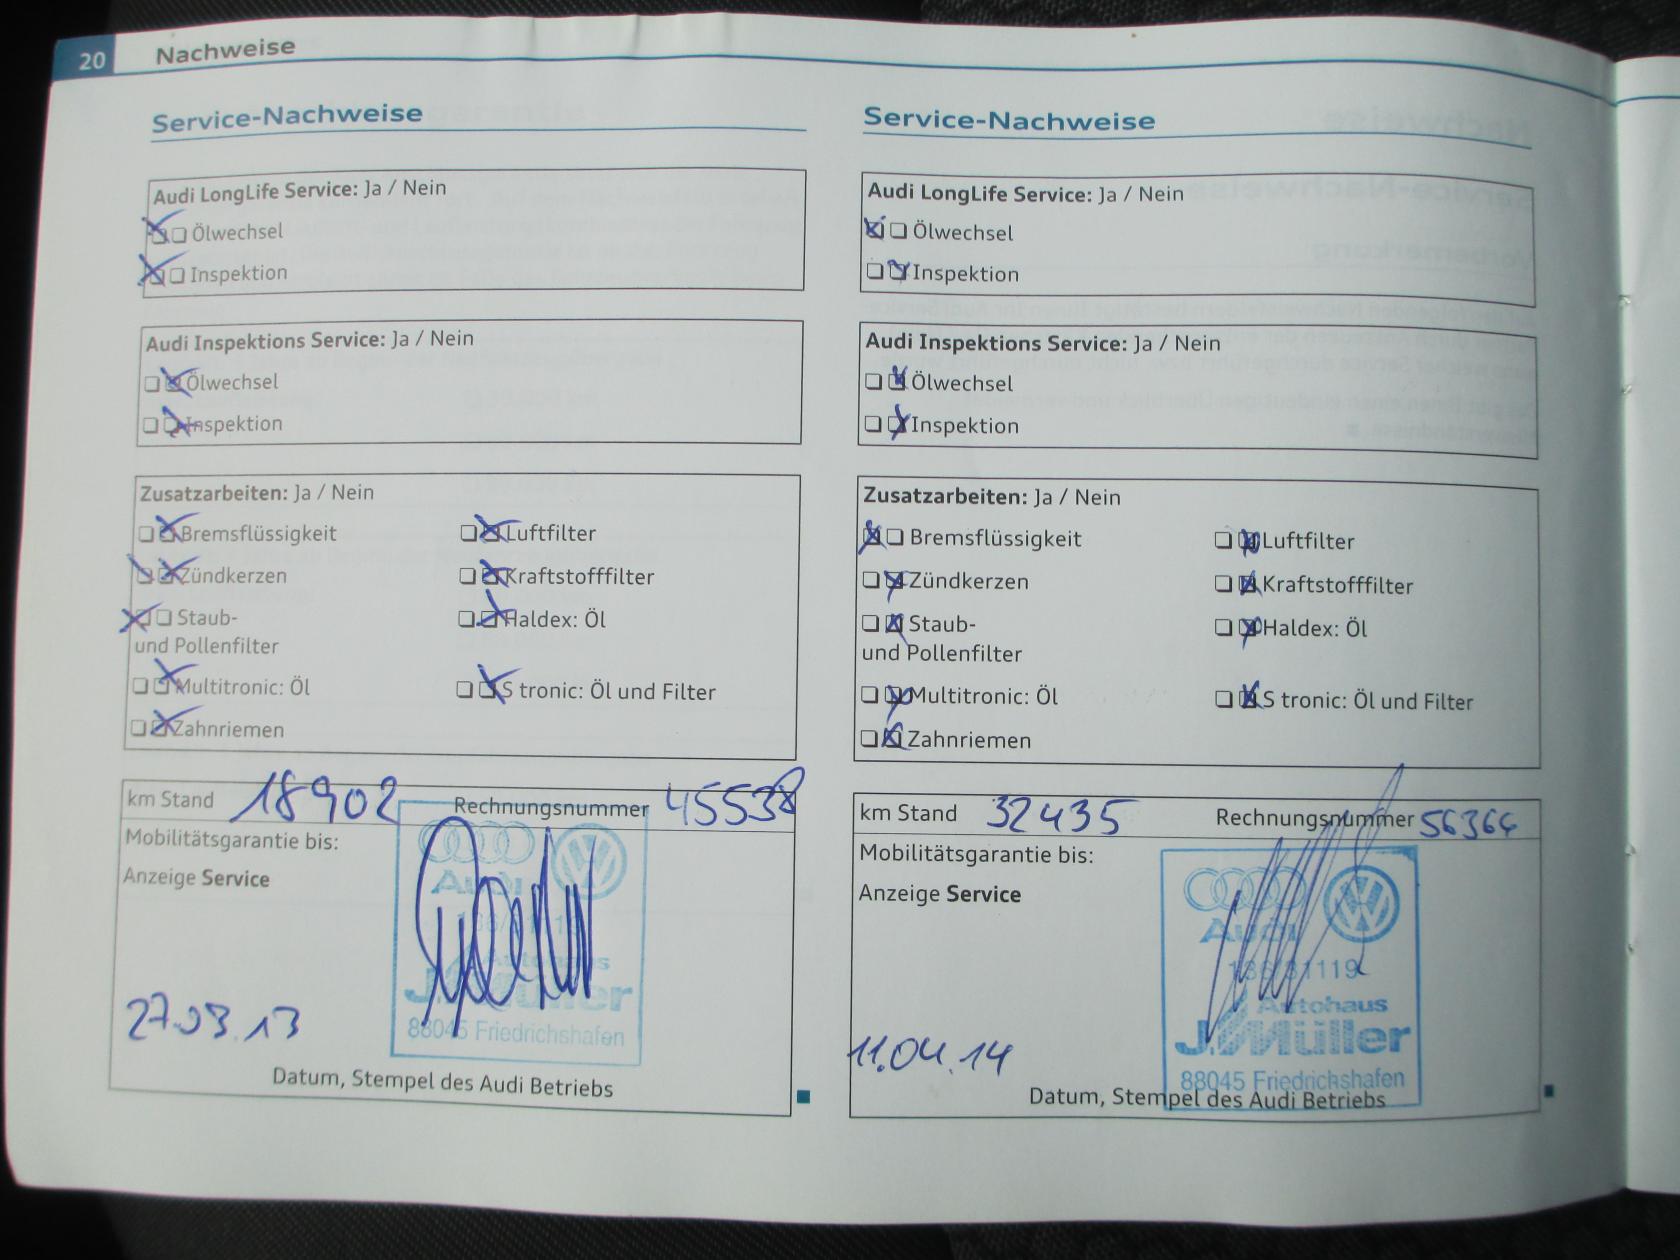 20 Nachweise
Service-Nachweise
Audi LongLife Service: Ja / Nein
Ölwechsel
Inspektion
Audi Inspektions Service: Ja / Nein
Ölwechsel
Inspektion
Zusatzarbeiten: Ja / Nein
Bremsflüssigkeit Luftfilter
Zündkerzen Kraftstofffilter
Staub- Haldex: Öl
und Pollenfilter
Multitronic: Öl S tronic: Öl und Filter
Zahnriemen
km Stand 18902 Rechnungsnummer 45538
Mobilitätsgarantie bis:
Anzeige Service
Audi
Autohaus
J. Müller
88045 Friedrichshafen
27.03.13
Datum, Stempel des Audi Betriebs
Service-Nachweise
Audi LongLife Service: Ja / Nein
Ölwechsel
Inspektion
Audi Inspektions Service: Ja / Nein
Ölwechsel
Inspektion
Zusatzarbeiten: Ja / Nein
Bremsflüssigkeit Luftfilter
Zündkerzen Kraftstofffilter
Staub- Haldex: Öl
und Pollenfilter
Multitronic: Öl S tronic: Öl und Filter
Zahnriemen
km Stand 32435 Rechnungsnummer 56364
Mobilitätsgarantie bis:
Anzeige Service
Audi
136/31119
Autohaus
J. Müller
88045 Friedrichshafen
11.04.14
Datum, Stempel des Audi Betriebs